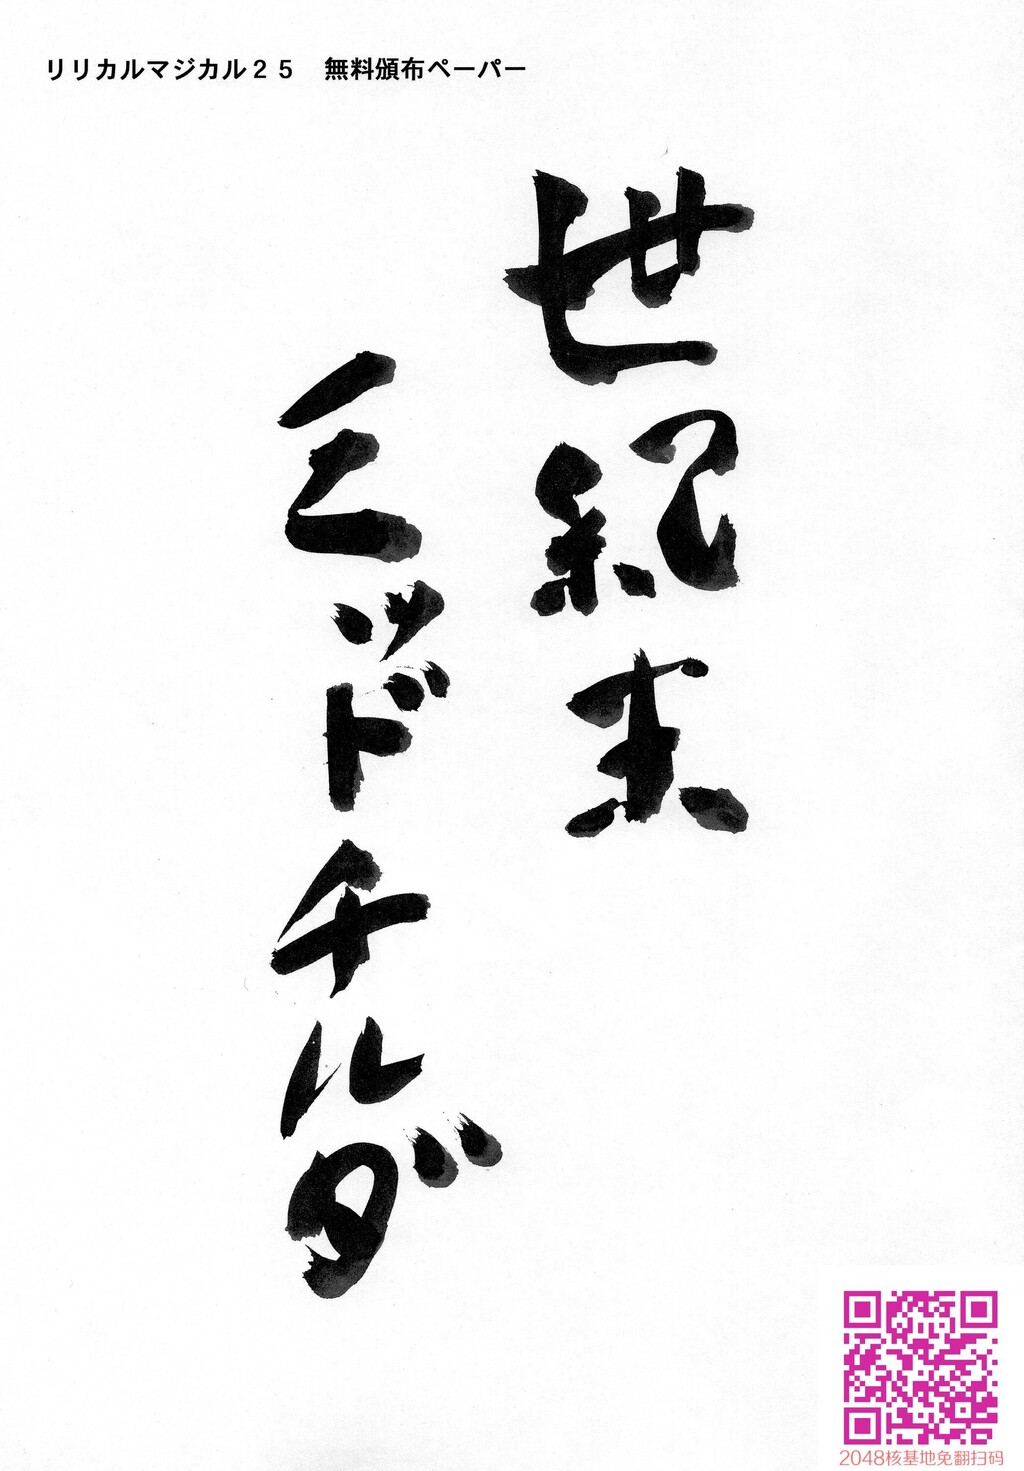 リリカルマジカル２５　無料頒布ペーパー
世紀末
ミッドチルダ
2048核基地免翻扫码